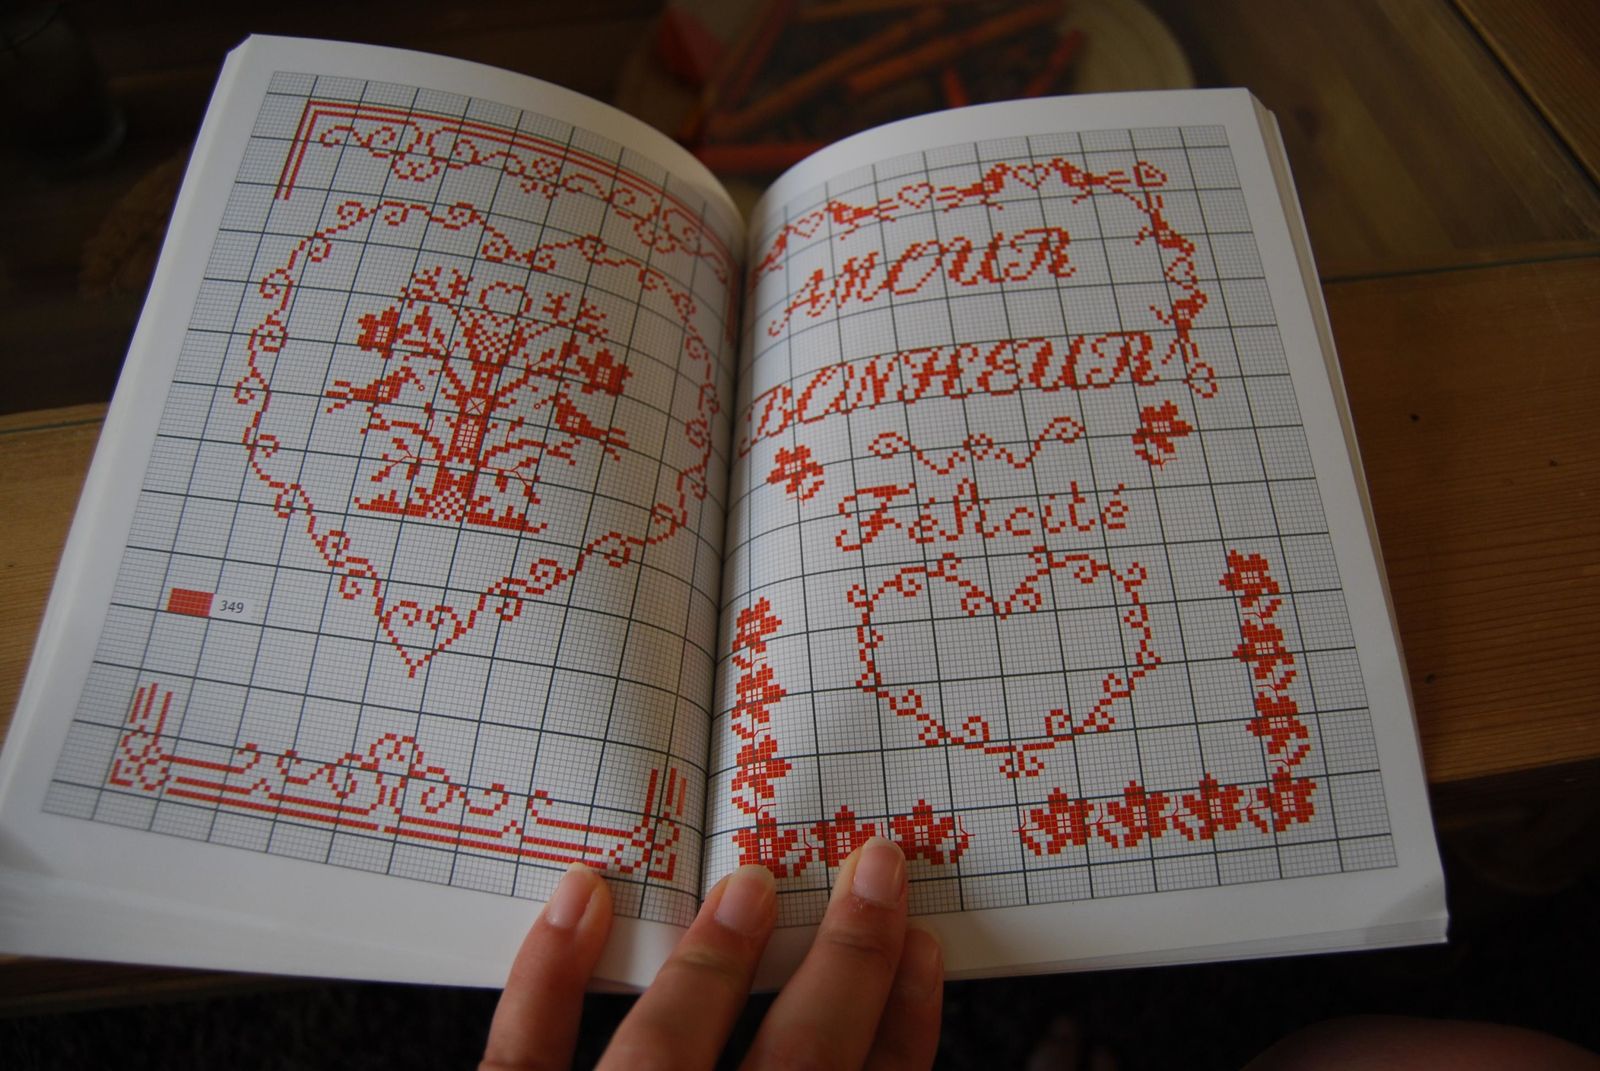 349
AMOUR
BONHEUR
Felicité